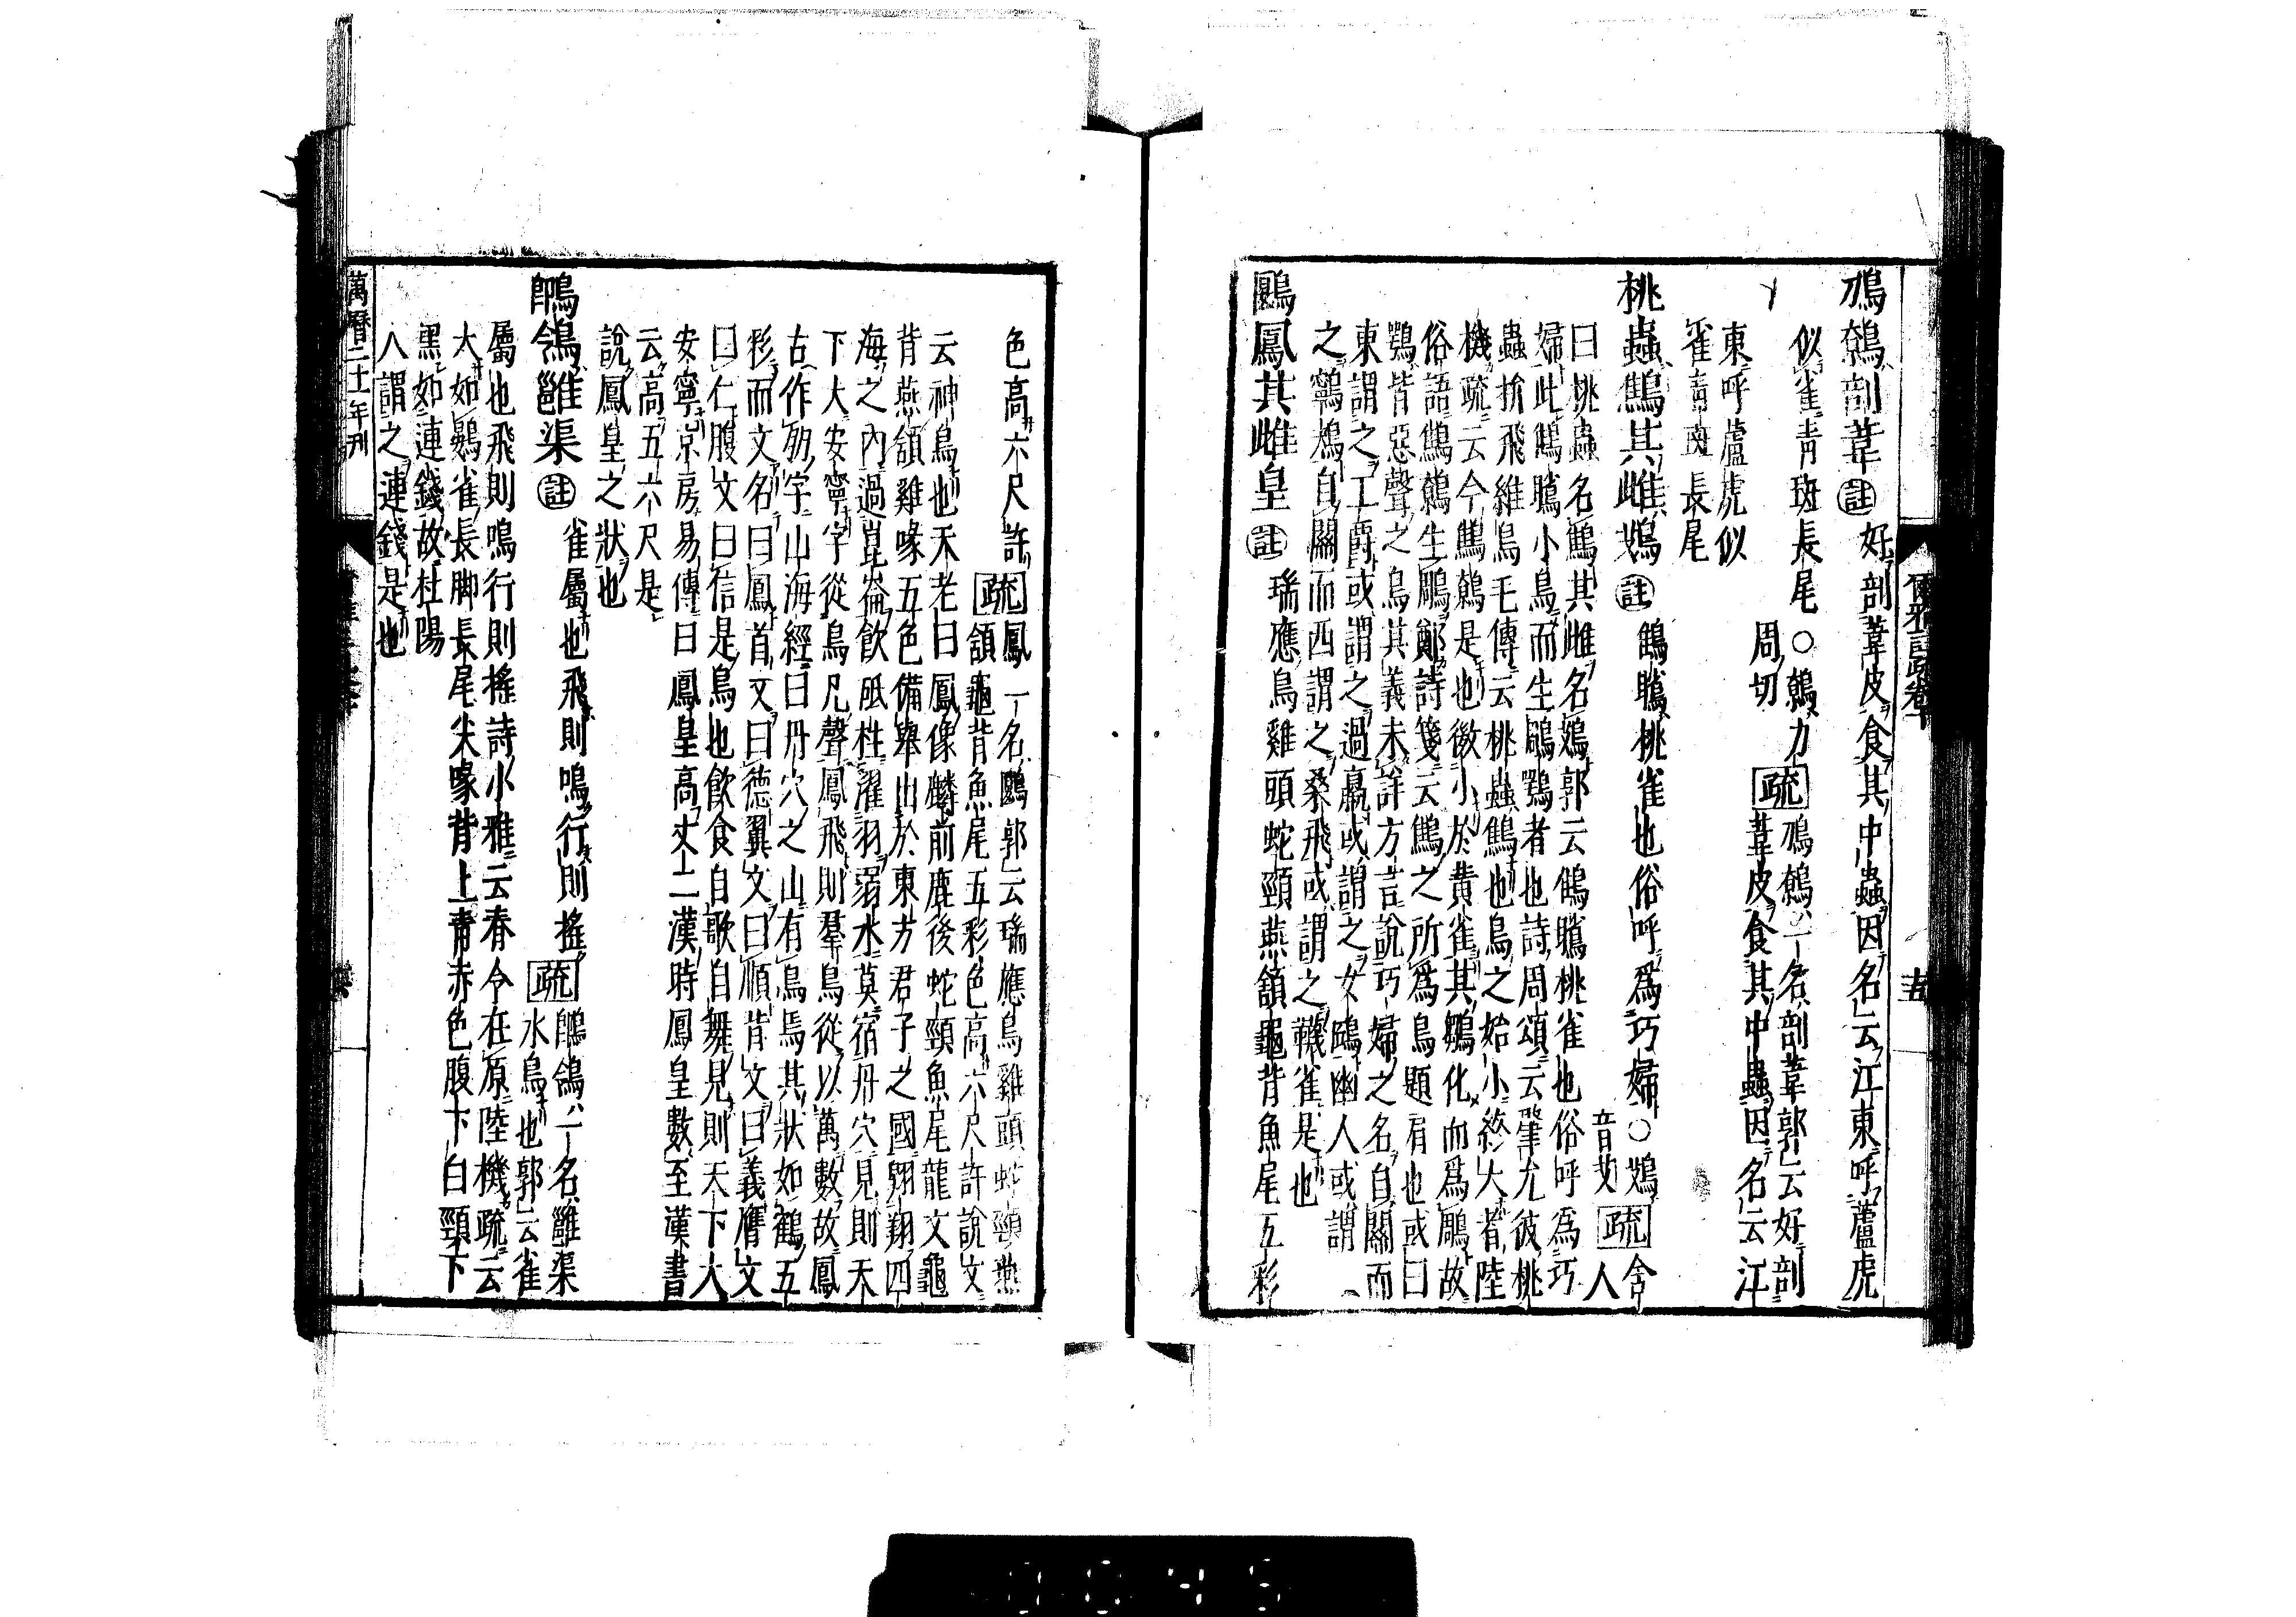 鳭鷯剖葦註好剖葦皮食其中蟲因名云江東呼蘆虎
似雀青斑長尾○鷯力
周切
疏鳭鷯一名剖葦郭云好剖
葦皮食其中蟲因名云江
東呼蘆虎似
雀青斑長尾
桃蟲鷦其雌鴱註鷦䳟桃雀也俗呼爲巧婦○鴱
音艾
疏舍
人
曰桃蟲名鷦其雌名鴱郭云鷦䳟桃雀也俗呼爲巧
婦此鷦䳟小鳥而生鵰鶚者也詩周頌云肇允彼桃
蟲拚飛維鳥毛傳云桃蟲鷦也鳥之始小終大者陸
機疏云今鷦鷯是也微小於黃雀其鶵化而爲鵰故
俗語鷦鷯生鵰鄭詩箋云鷦之所爲鳥題肩也或曰
鶚皆惡聲之鳥其義未詳方言說巧婦之名自關而
東謂之工爵或謂之過鸁或謂之女鴎幽人或謂
之鸋鴂自關而西謂之桑飛或謂之懱雀是也
鶠鳳其雌皇註瑞應鳥雞頭蛇頸燕頷龜背魚尾五彩
色高六尺許疏鳳一名鶠郭云瑞應鳥雞頭蛇頸燕
頷龜背魚尾五彩色高六尺許說文
云神鳥也天老曰鳳像麟前鹿後蛇頸魚尾龍文龜
背燕頷雞喙五色備舉出於東方君子之國翱翔四
海之內過崑崙飲砥柱濯羽弱水莫宿丹穴見則天
下大安寧字從鳥凡聲鳳飛則羣鳥從以萬數故鳳
古作朋字山海經曰丹穴之山有鳥焉其狀如鶴五
彩而文名曰鳳首文曰德翼文曰順背文曰義膺文
曰仁腹文曰信是鳥也飲食自歌自舞見則天下大
安寧京房易傳曰鳳皇高丈二漢時鳳皇數至漢書
云高五六尺是
說鳳皇之狀也
䳭鴒雝渠註雀屬也飛則鳴行則搖疏䳭鴒一名雝渠
水鳥也郭云雀
屬也飛則鳴行則搖詩小雅云春令在原陸機疏云
大如鷃雀長脚長尾尖喙背上青赤色腹下白頸下
黑如連錢故杜陽
人謂之連錢是也
萬曆二十一年刊
爾雅註疏卷十